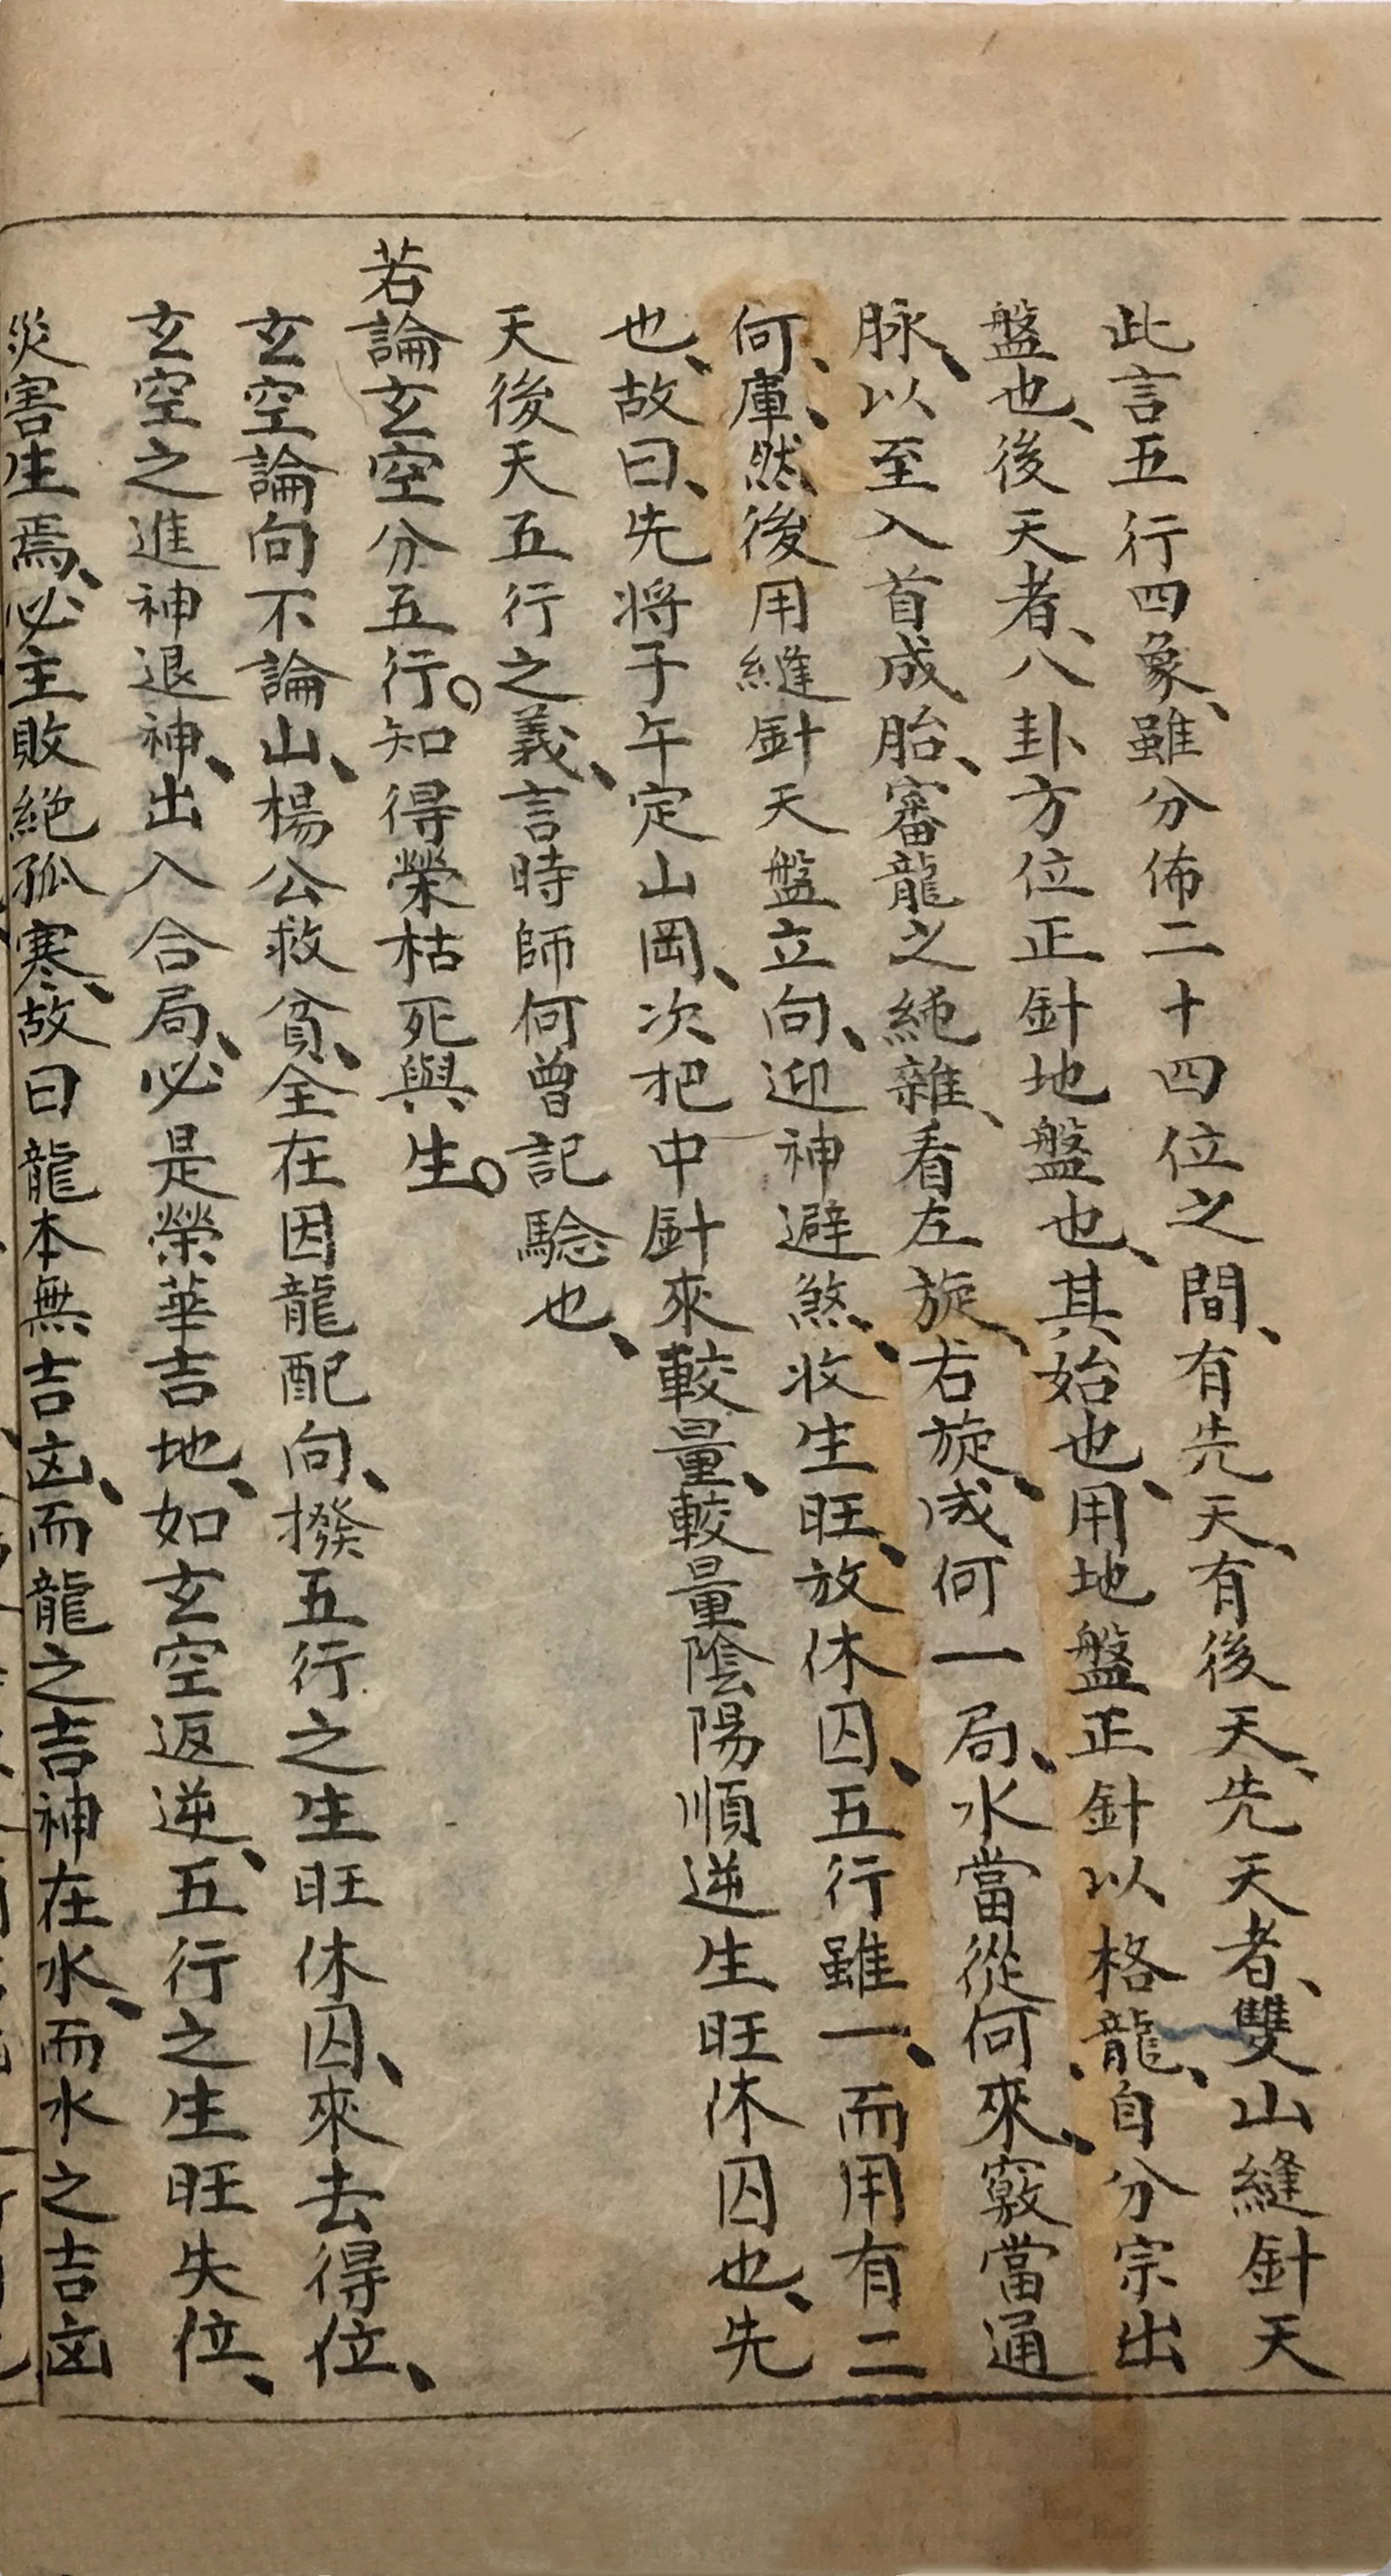 此言五行四象、雖分佈二十四位之間、有先天、有後天、先天者、雙山縫針天
盤也、後天者、八卦方位正針地盤也、其始也、用地盤正針以格龍、自分宗出
脉、以至入首成胎、審龍之純雜、看左旋、右旋、成何一局、水當從何來、竅當通
何、庫、然後用縫針天盤立向、迎神避煞、收生旺、放休囚、五行雖一、而用有二
也、故曰、先将子午定山岡、次把中針來較量、較量陰陽順逆生旺休囚也、先
天後天五行之義、言時師何曾記驗也、
若論玄空分五行。知得榮枯死與生。
玄空論向不論山、楊公救貧、全在因龍配向、撥五行之生旺休囚、來去得位、
玄空之進神退神、出入合局、必是榮華吉地、如玄空返逆、五行之生旺失位、
災害生焉、必主敗絕孤寒、故曰龍本無吉凶、而龍之吉神在水、而水之吉凶